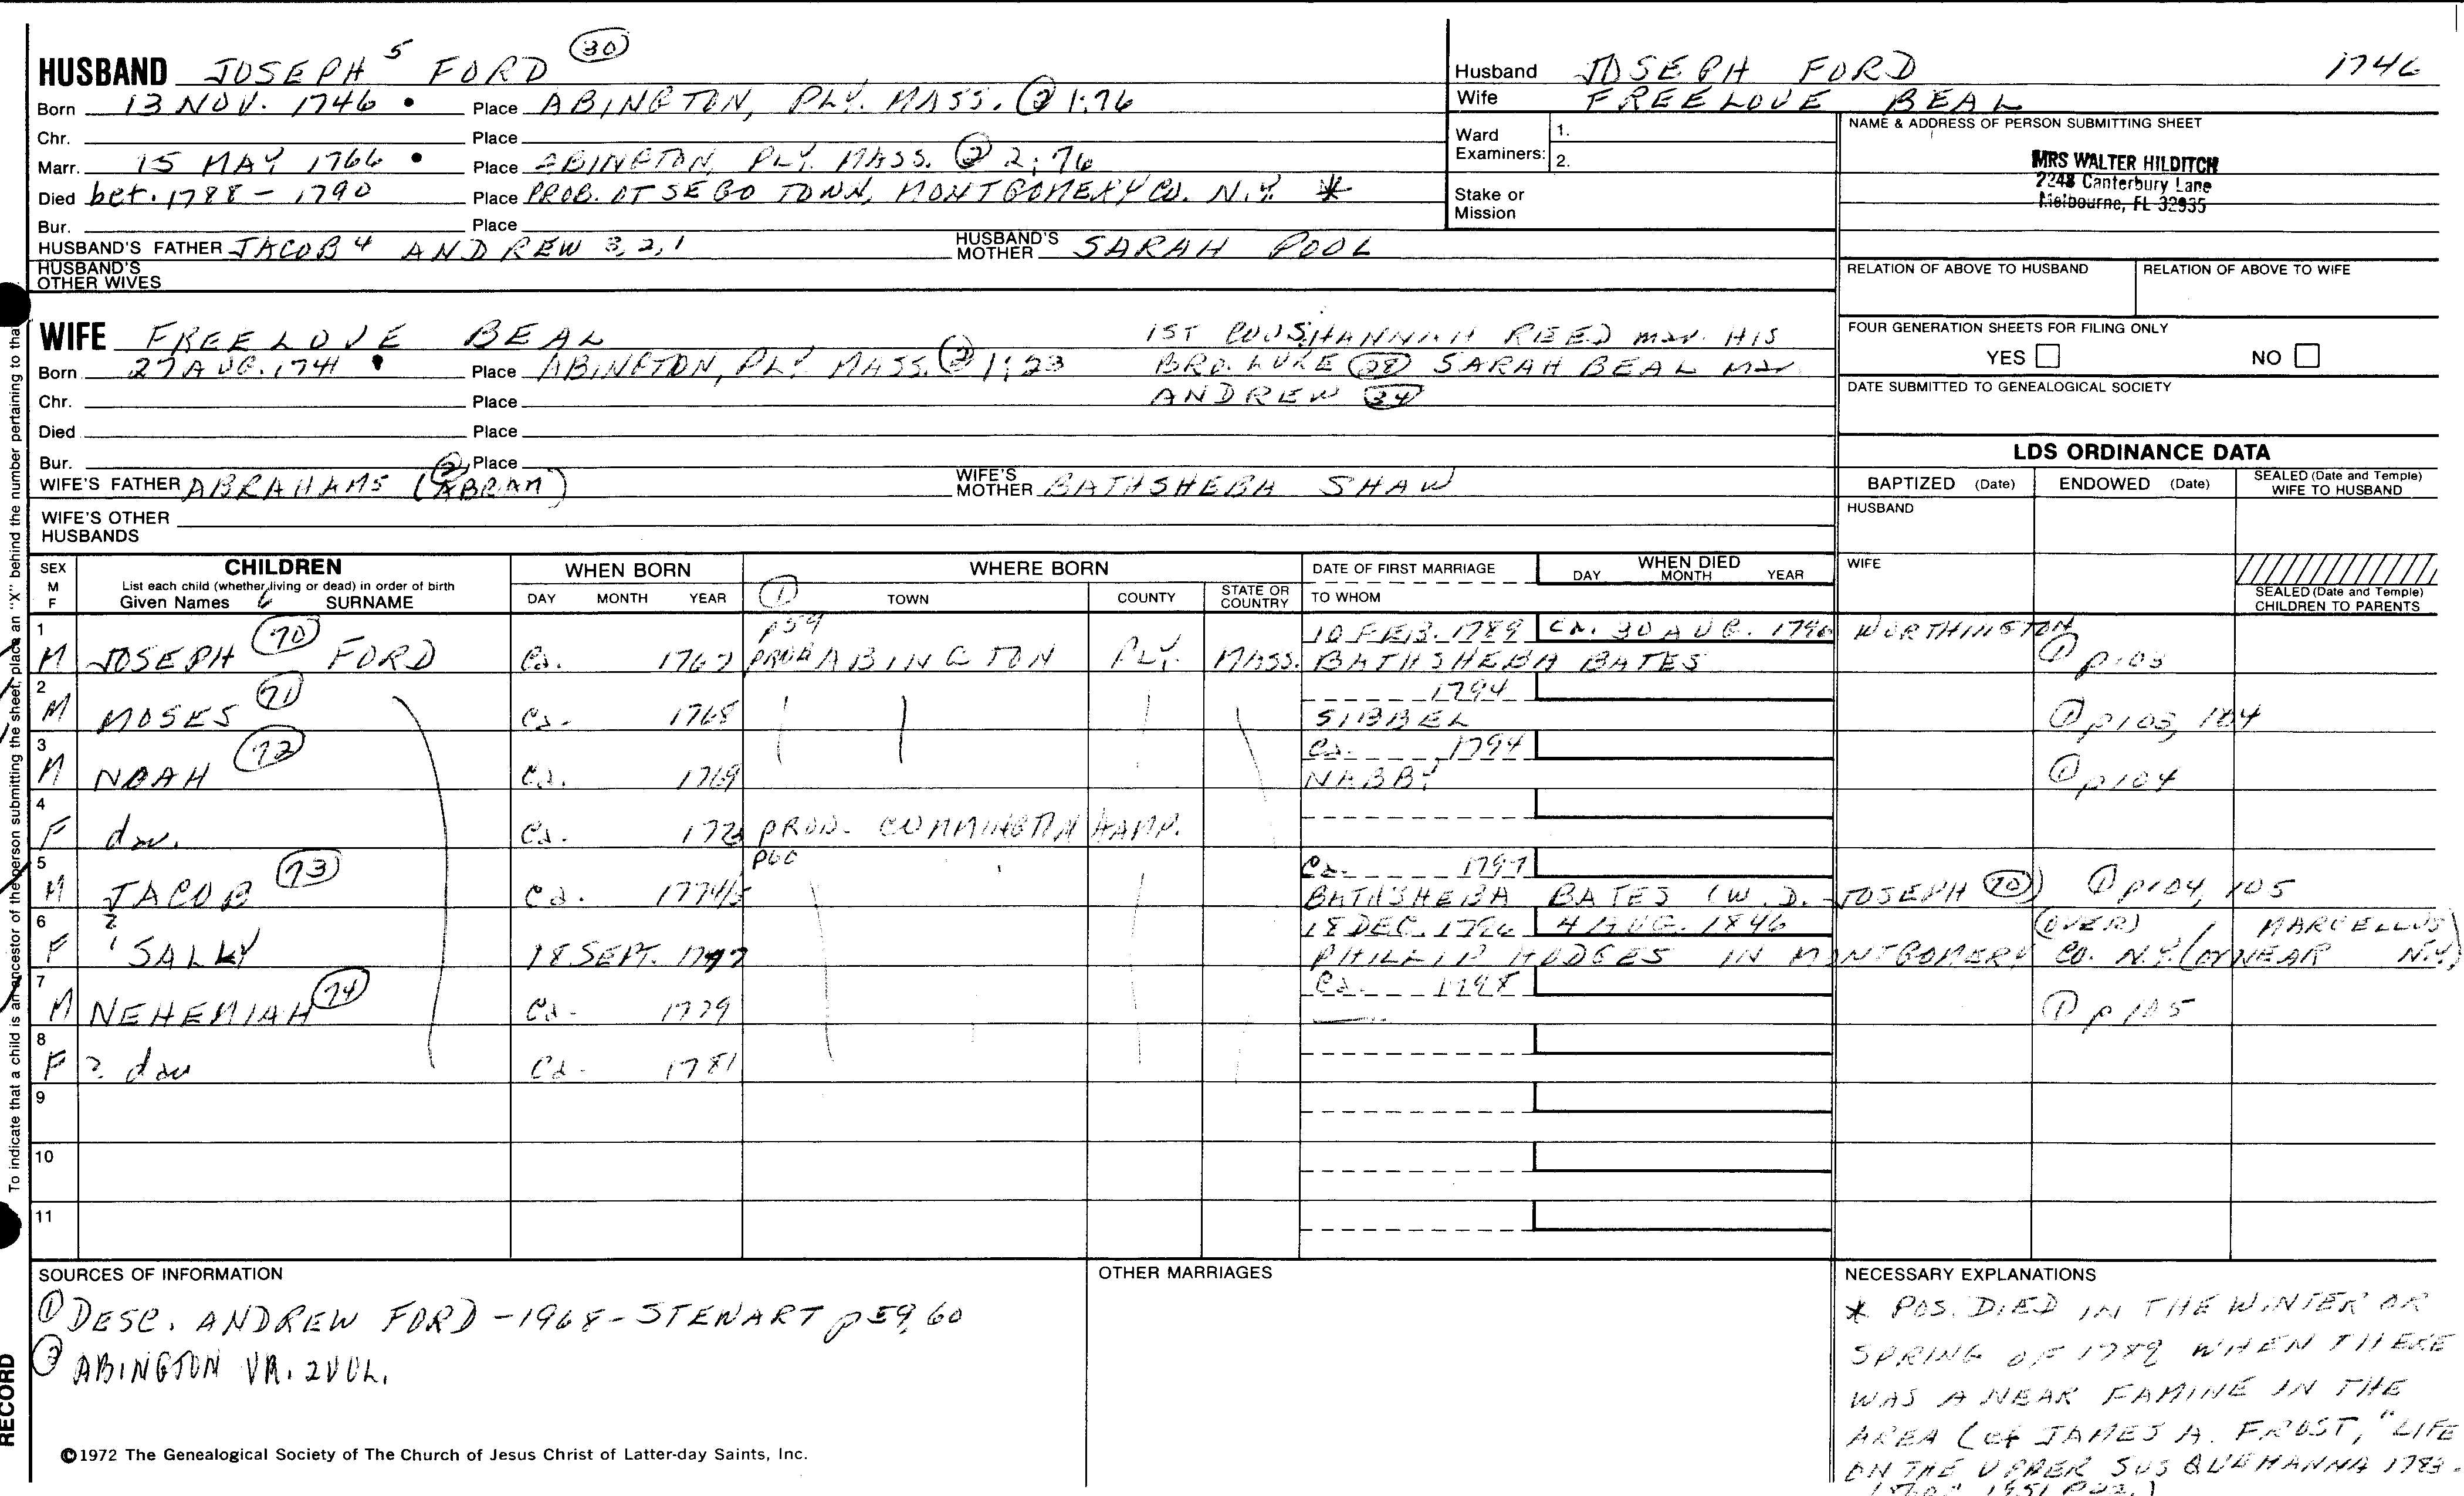 HUSBAND JOSEPH 5 FORD (30)
Born 13 NOV. 1746 • Place ABINGTON, PLY. MASS. (2) 1:76
Chr. Place
Marr. 15 MAY 1766 • Place ABINGTON, PLY. MASS. (2) 2:76
Died bet. 1788 - 1790 Place PROB. OTSEGO TOWN, MONTGOMERY CO. N.Y. *
Bur. Place
HUSBAND'S FATHER JACOB 4 ANDREW 3,2,1 HUSBAND'S MOTHER SARAH POOL
HUSBAND'S OTHER WIVES
Husband JOSEPH FORD 1746
Wife FREELOVE BEAL
Ward Examiners: 1.
2.
Stake or Mission
NAME & ADDRESS OF PERSON SUBMITTING SHEET
MRS WALTER HILDITCH
2248 Canterbury Lane
Melbourne, FL 32935
RELATION OF ABOVE TO HUSBAND RELATION OF ABOVE TO WIFE
FOUR GENERATION SHEETS FOR FILING ONLY
YES NO
DATE SUBMITTED TO GENEALOGICAL SOCIETY
WIFE FREELOVE BEAL 1ST COUS. HANNAH REED mar. HIS
Born 27 AUG. 1741 • Place ABINGTON, PLY. MASS. (2) 1:23 BRO. LUKE (28) SARAH BEAL mar
Chr. Place ANDREW (34)
Died Place
Bur. Place
WIFE'S FATHER ABRAHAMS (ABRAM) (2) WIFE'S MOTHER BATHSHEBA SHAW
WIFE'S OTHER HUSBANDS
LDS ORDINANCE DATA
BAPTIZED (Date) ENDOWED (Date) SEALED (Date and Temple) WIFE TO HUSBAND
HUSBAND
WIFE
SEALED (Date and Temple) CHILDREN TO PARENTS
SEX M F CHILDREN List each child (whether living or dead) in order of birth Given Names 6 SURNAME
WHEN BORN DAY MONTH YEAR
WHERE BORN (1) TOWN COUNTY STATE OR COUNTRY
DATE OF FIRST MARRIAGE TO WHOM
WHEN DIED DAY MONTH YEAR
1 p59 10 FEB. 1789 CA. 30 AUG. 1796 WORTHINGTON
M JOSEPH (70) FORD Ca. 1767 PROB ABINGTON PLY. MASS. BATHSHEBA BATES (1) p.103
2 1794
M MOSES (71) Ca. 1768 SIBBEL (1) p103, 104
3 Ca. 1794
M NOAH (72) Ca. 1769 NABBY (1) p104
4
F dau. Ca. PROB. CUMMINGTON HAMP.
5 p60 Ca. 1797
M JACOB (73) Ca. 1774/5 BATHSHEBA BATES (W.D. JOSEPH (70)) (1) p104, 105
6 18 DEC. 1796 4 AUG. 1846 (OVER) MARCELLUS
F ? SALLY 18 SEPT. 1777 PHILLIP HODGES IN MONTGOMERY CO. N.Y. (or NEAR N.Y.)
7 Ca. 1798
M NEHEMIAH (74) Ca. 1779 (1) p105
8
F ? dau Ca. 1781
9
10
11
SOURCES OF INFORMATION
(1) DESC. ANDREW FORD - 1968 - STEWART p59, 60
(2) ABINGTON VR. 2 VOL.
OTHER MARRIAGES
NECESSARY EXPLANATIONS
* POS. DIED IN THE WINTER OR
SPRING OF 1789 WHEN THERE
WAS A NEAR FAMINE IN THE
AREA (cf JAMES A. FROST, "LIFE
ON THE UPPER SUSQUEHANNA 1783-
1951
©1972 The Genealogical Society of The Church of Jesus Christ of Latter-day Saints, Inc.
To indicate that a child is an ancestor of the person submitting the sheet, place an "X" behind the number pertaining to that
RECORD